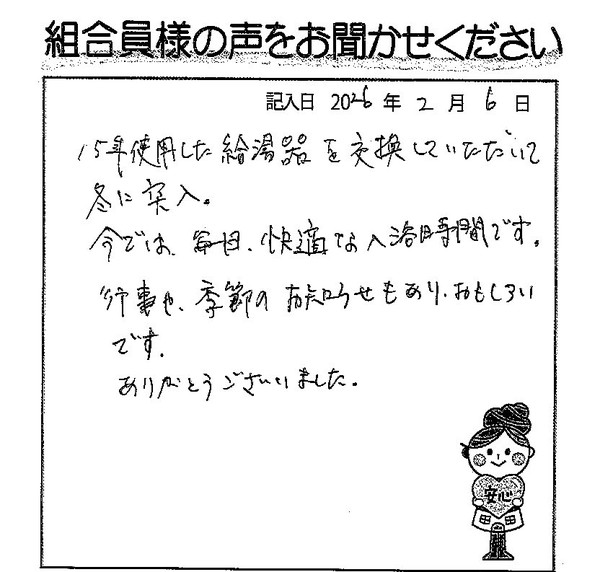 組合員様の声をお聞かせください
記入日 2026年 2月 6日
15年使用した給湯器を交換していただいて
冬に突入。
今では、毎日、快適な入浴時間です。
行事や、季節のお知らせもあり、おもしろい
です。
ありがとうございました。
安心